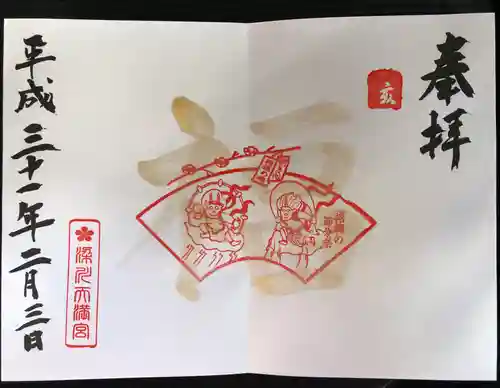 奉拝
亥
福
節分祭
平成三十一年二月三日
深川天満宮